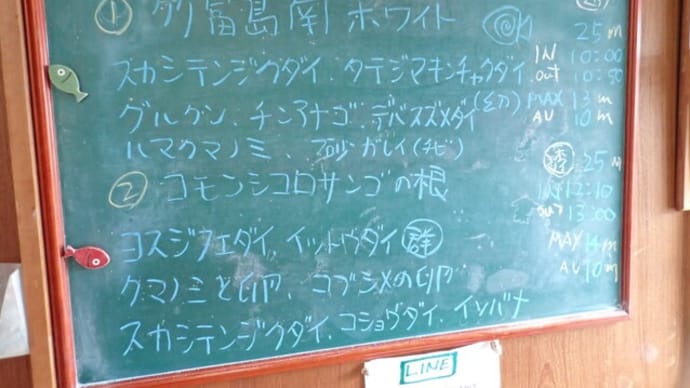 ① 竹富島南ホワイト
25m
IN 10:00
スカシテンジクダイ、タテジマキンチャクダイ
out 10:50
(幼)
MAX 13m
グルクン、チンアナゴ、デバスズメダイ
AV 10m
ハマクマノミ、砂ガレイ(チビ)
透 25m
② コモンシコロサンゴの根
IN 12:10
out 13:00
コスジフエダイ、イットウダイ 群
MAX 14m
クマノミと卵、コブシメの卵
AV 10m
スカシテンジクダイ、コショウダイ、イソバナ
LINE